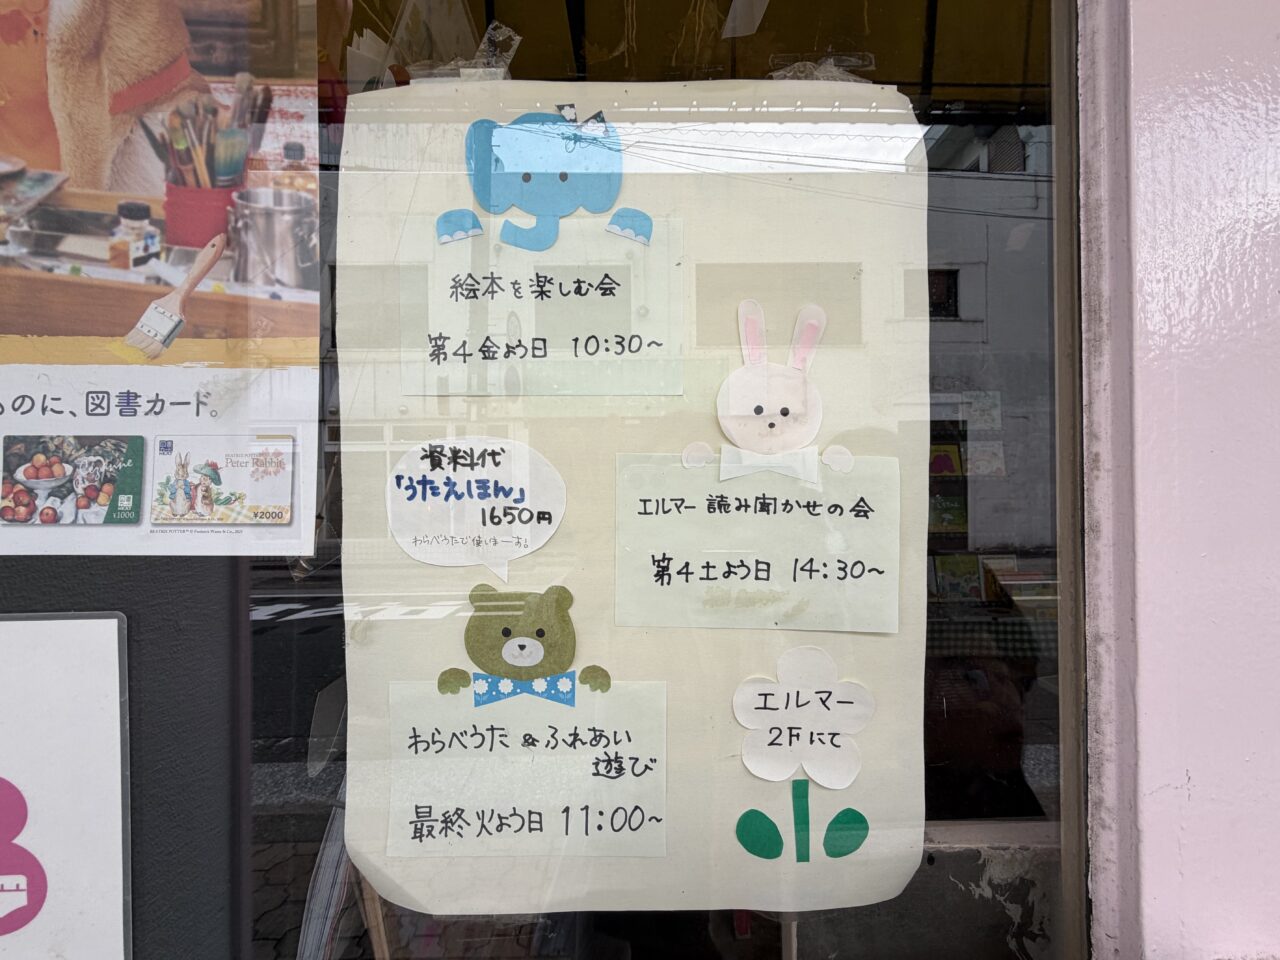 絵本を楽しむ会
第4金よう日 10:30～
エルマー 読み聞かせの会
第4土よう日 14:30～
資料代
「うたえほん」
1650円
わらべうたで使いまーす!
わらべうた & ふれあい
遊び
最終火よう日 11:00～
エルマー
2Fにて
ものに、図書カード。
図書
NEXT
¥1000
図書
NEXT
BEATRIX POTTER
Peter Rabbit
¥2000